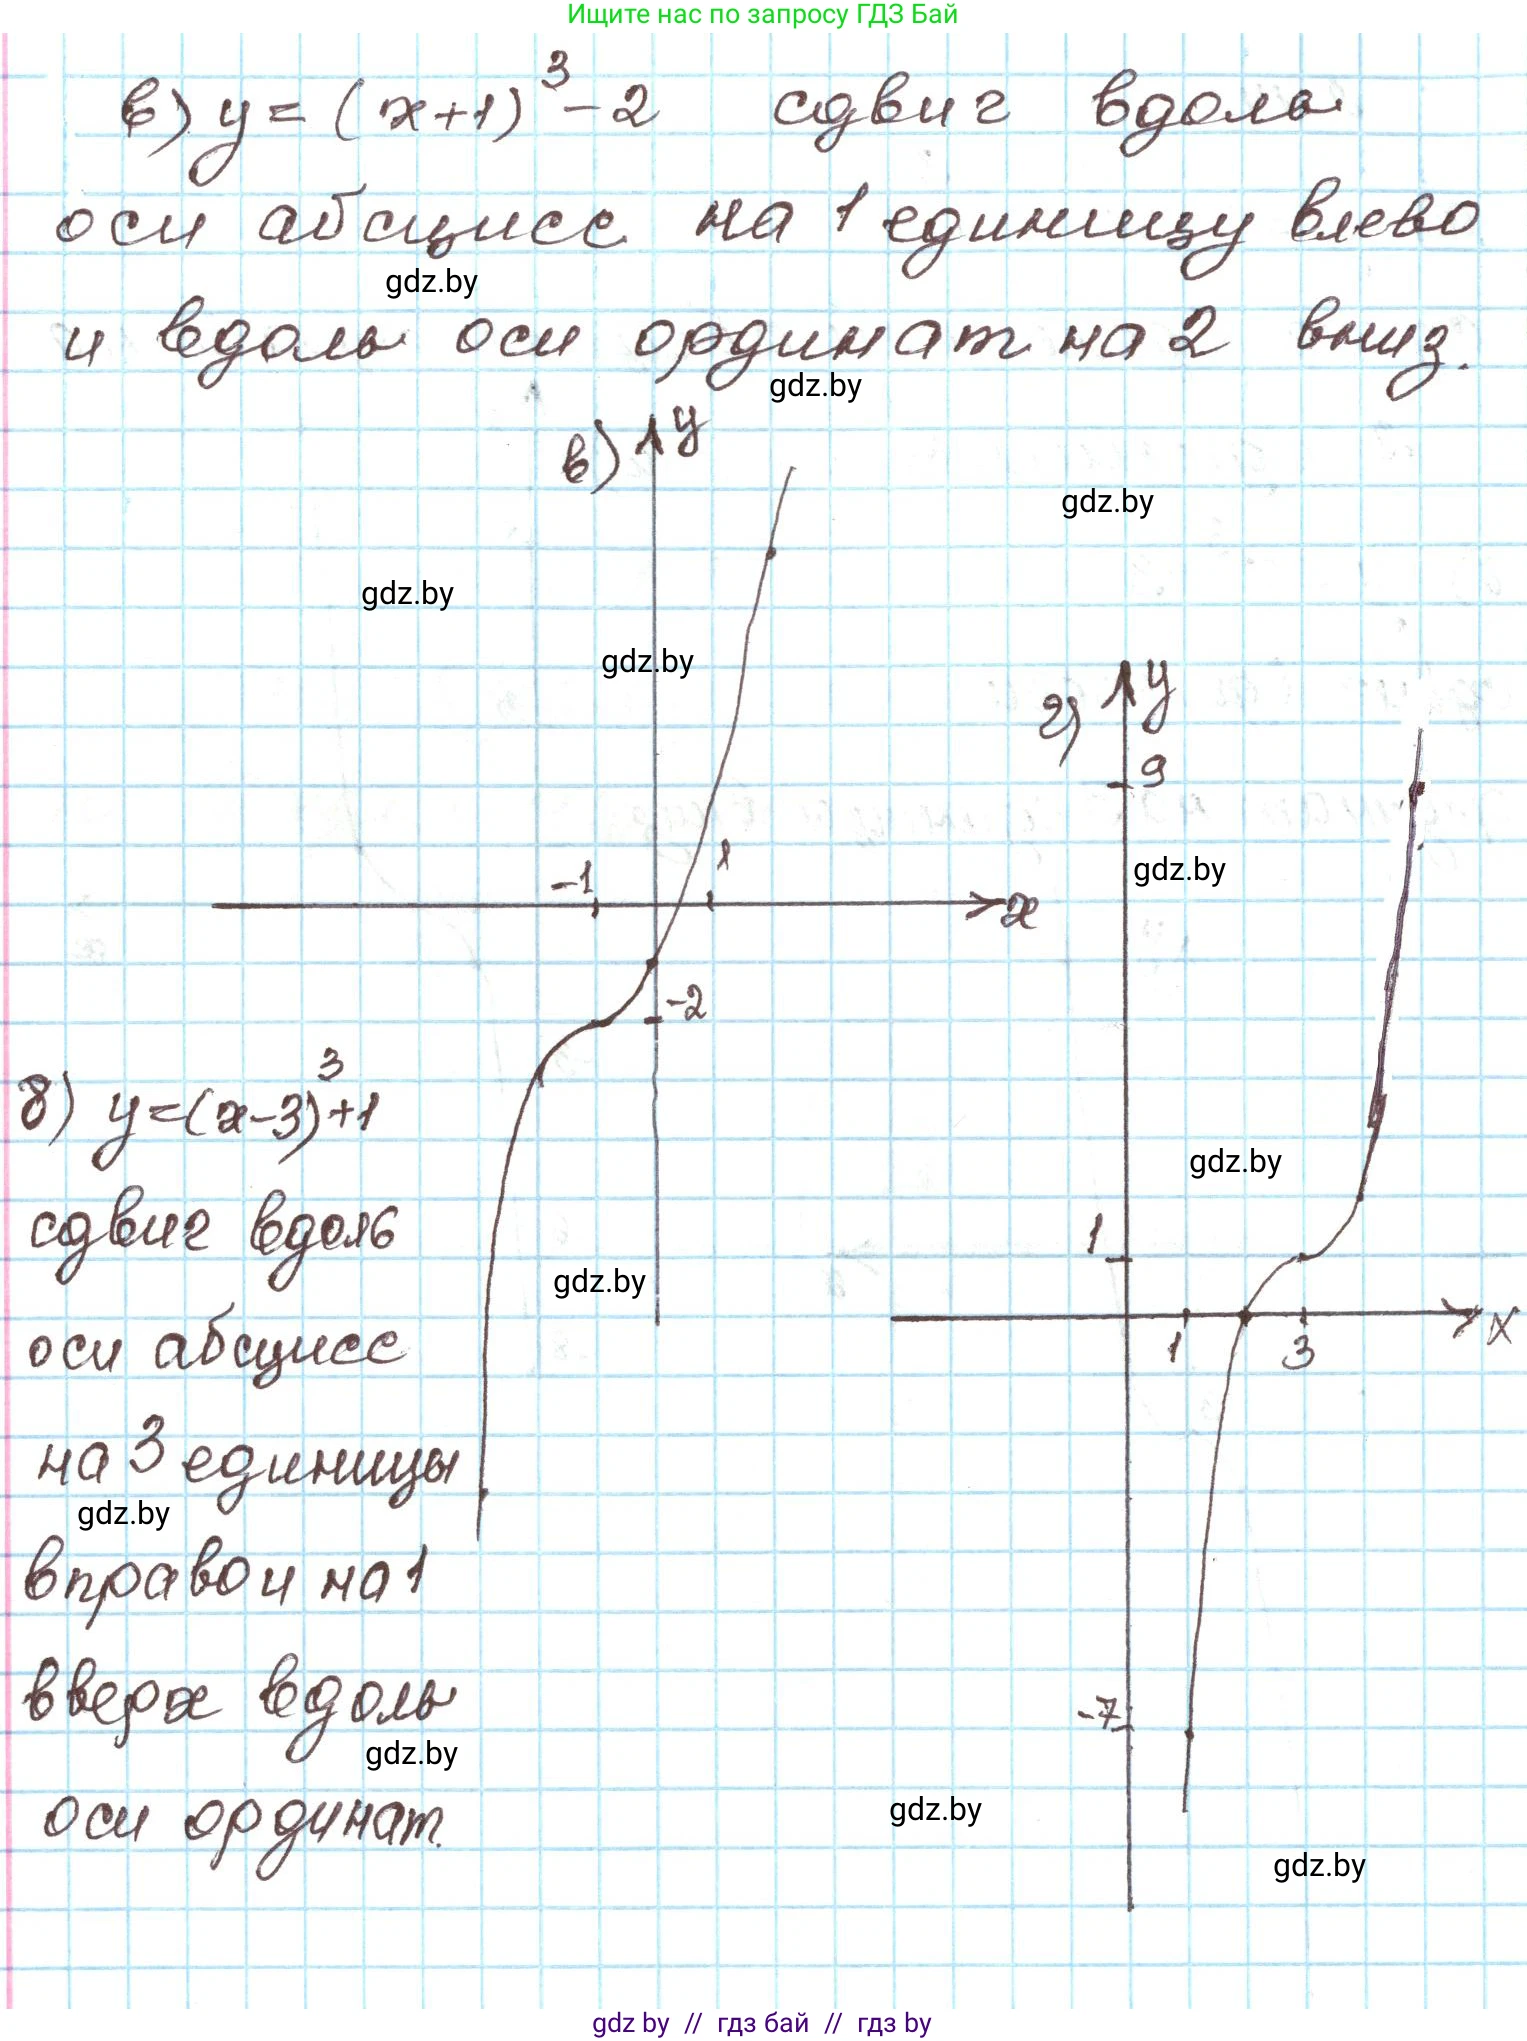 Ищите нас по запросу ГДЗ Бай
в) y = (x+1)³ - 2 сдвиг вдоль
оси абсцисс на 1 единицу влево
gdz.by
и вдоль оси ординат на 2 вниз.
gdz.by
в) y
gdz.by
gdz.by
gdz.by
г) y
9
gdz.by
-1 1
x
-2
8) y=(x-3)³+1
gdz.by
сдвиг вдоль
1
gdz.by
оси абсцисс
1 3 x
на 3 единицы
gdz.by
вправо и на 1
вверх вдоль
-7
gdz.by
оси ординат.
gdz.by
gdz.by
gdz by // гдз бай // гдз by